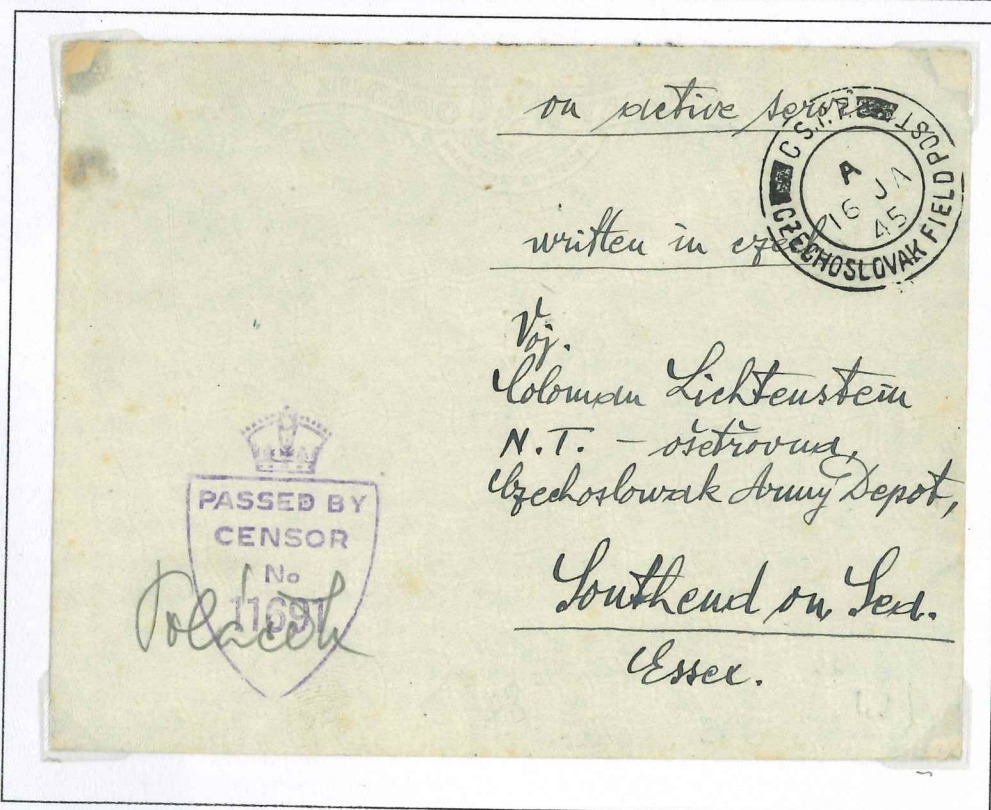 on active service
CS.F.P.
CZECHOSLOVAK FIELD POST
A
16 JA
45
written in czech
Voj.
Coloman Lichtenstein
N.T. – ošetřovna,
Czechoslowak Army Depot,
Southend on Sea.
Essex.
PASSED BY
CENSOR
No
11691
Poláček